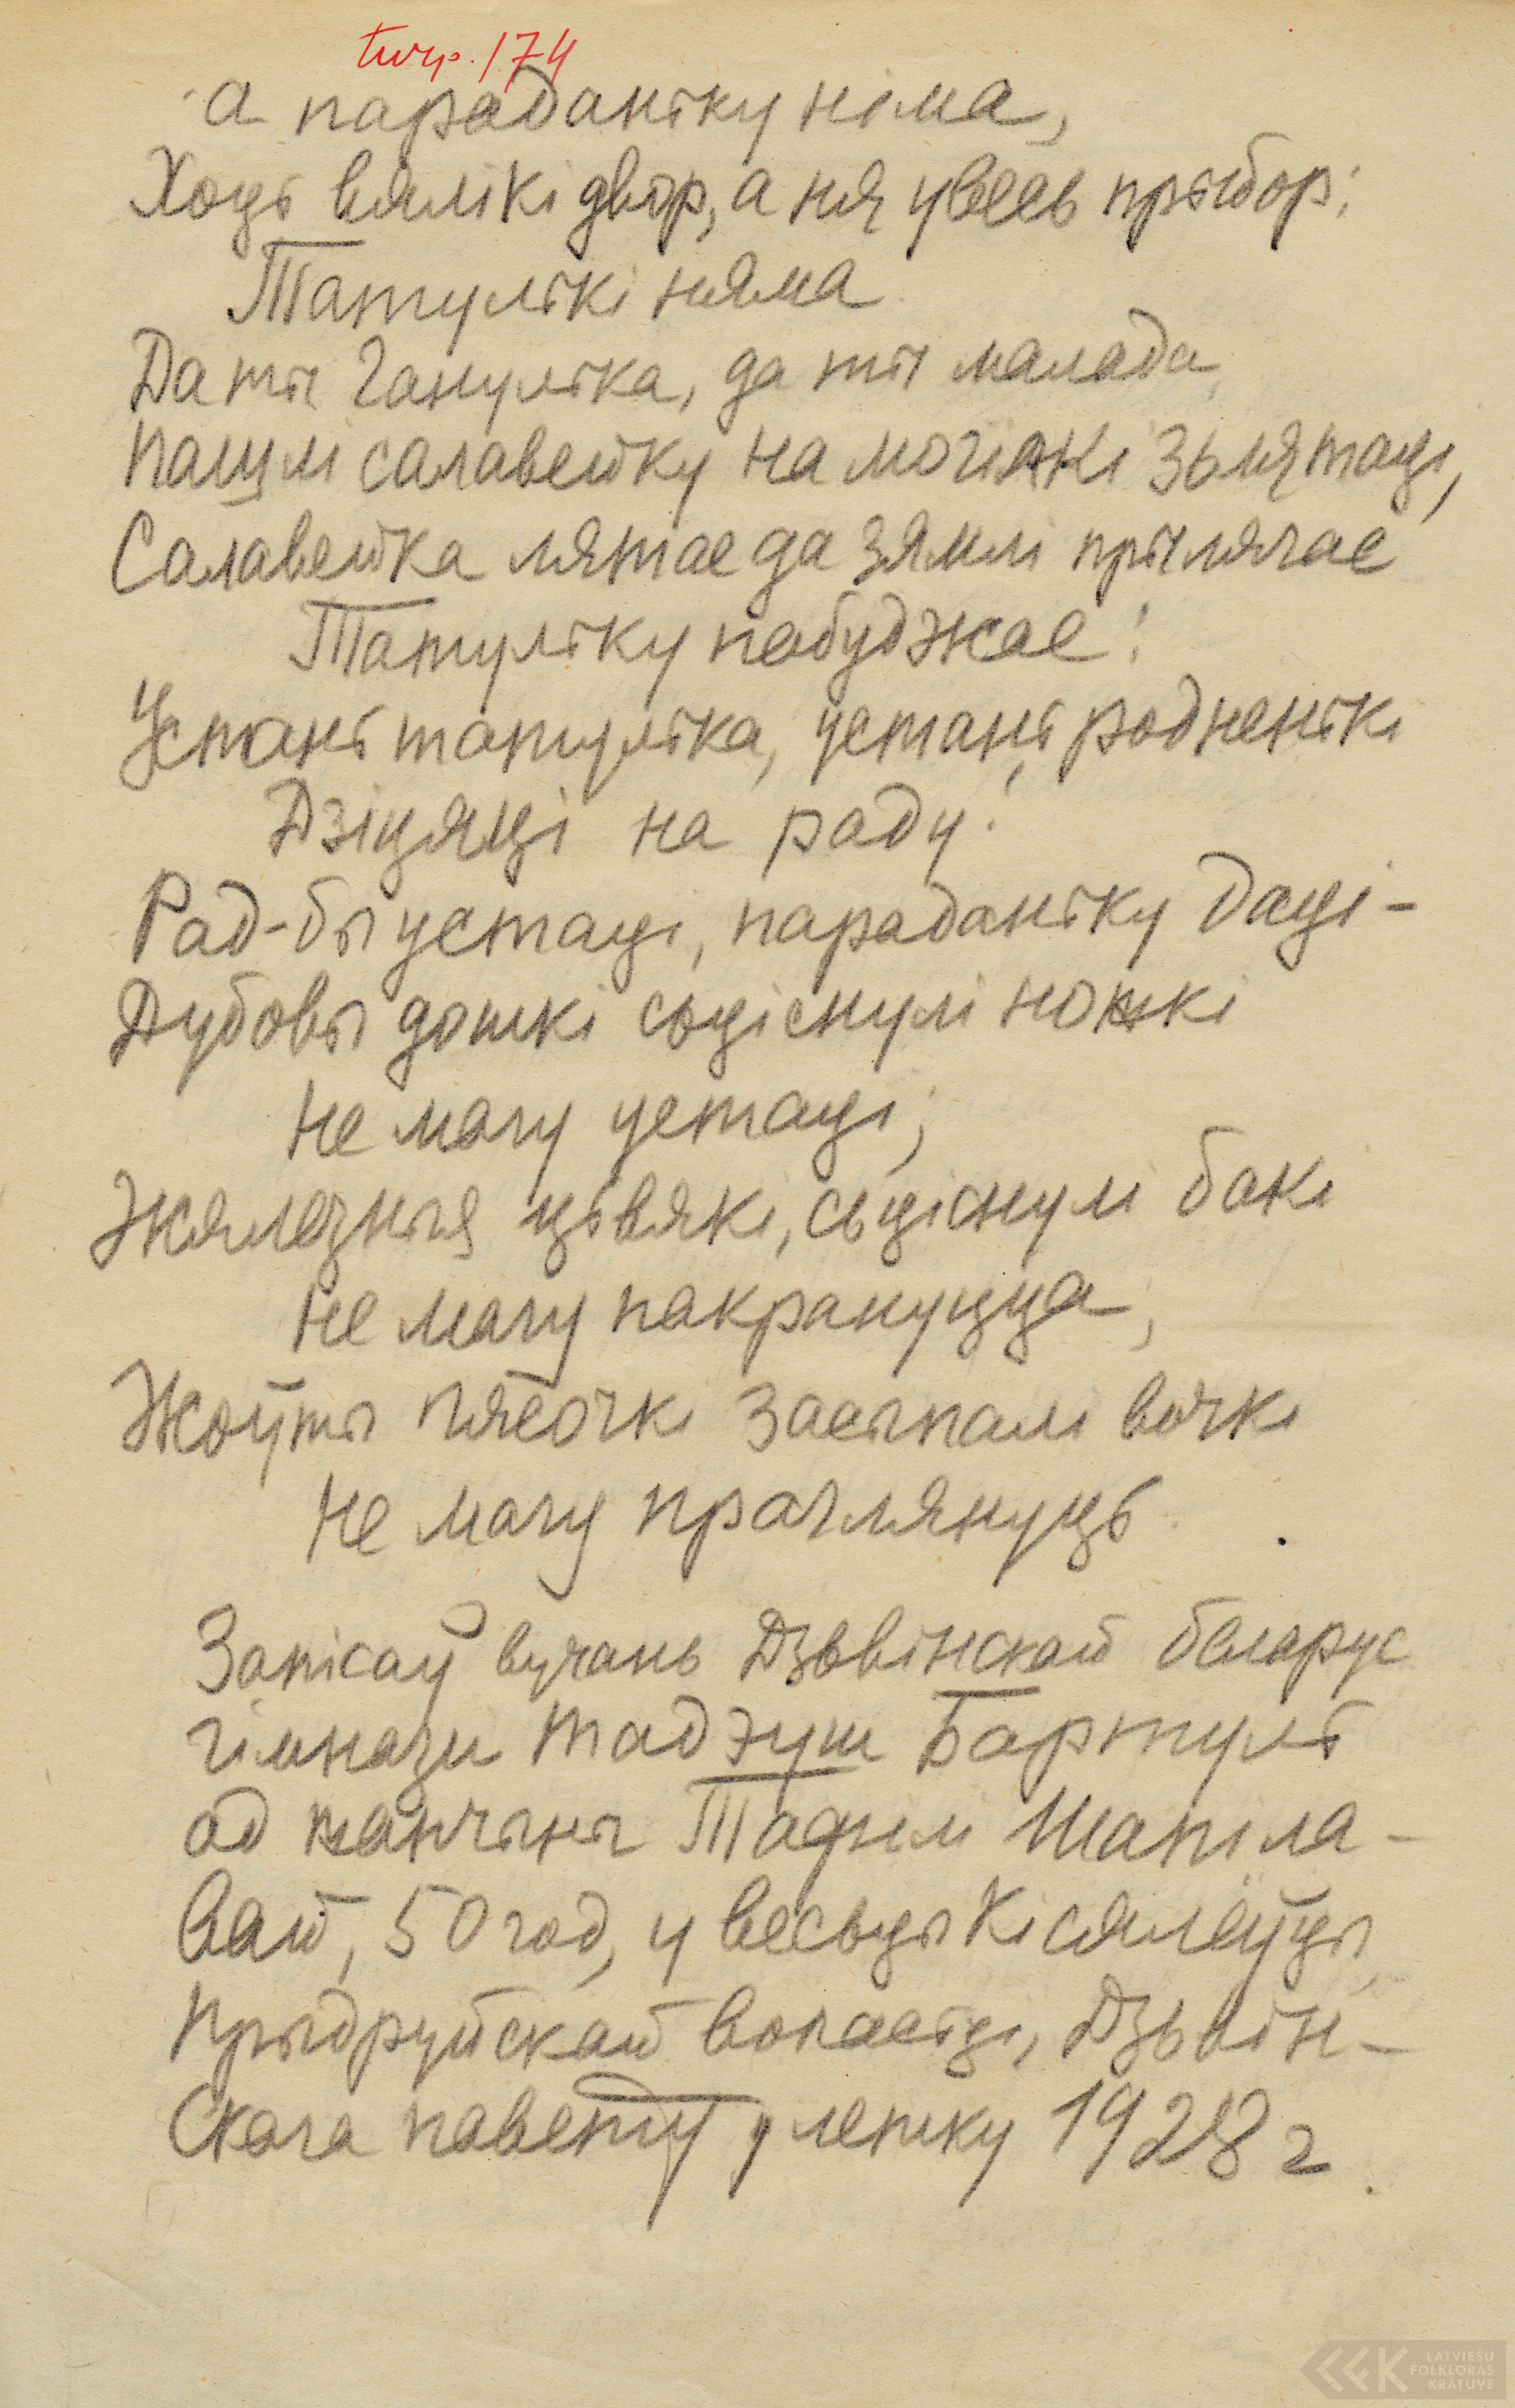 turp. 174
а парадачку німа,
Хоць вялікі двор, а ня увесь прыбор:
Татулькі няма
Да ты Ганулька, да ты малада,
Пашлі салавейку на могілкі зьлятаці,
Салавейка лятае да зямлі прылягае
Татульку пабуджае:
Устань татулька, устань родненькі
Дзіцяці на раду!
Рад-бы устаці, парадачку даці-
Дубовы дошкі сьціснулі ножкі
Не магу устаці;
Жялезныя цьвякі, сьціснулі бакі
Не магу пакрануцца,
Жоўты пясочкі засыпалі вочкі
Не магу праглянуць
Запісаў вучань Дзьвінскай беларус
гімназіі Тадэуш Бартуль
ад жанчыны Тафілі Шапіла-
вай, 50 год, у весьцы Кісялеўцы
Прыдруйскай воласьці, Дзьвін-
скага павету у летку 1928 г.
LATVIEŠU
FOLKLORAS
KRĀTUVE